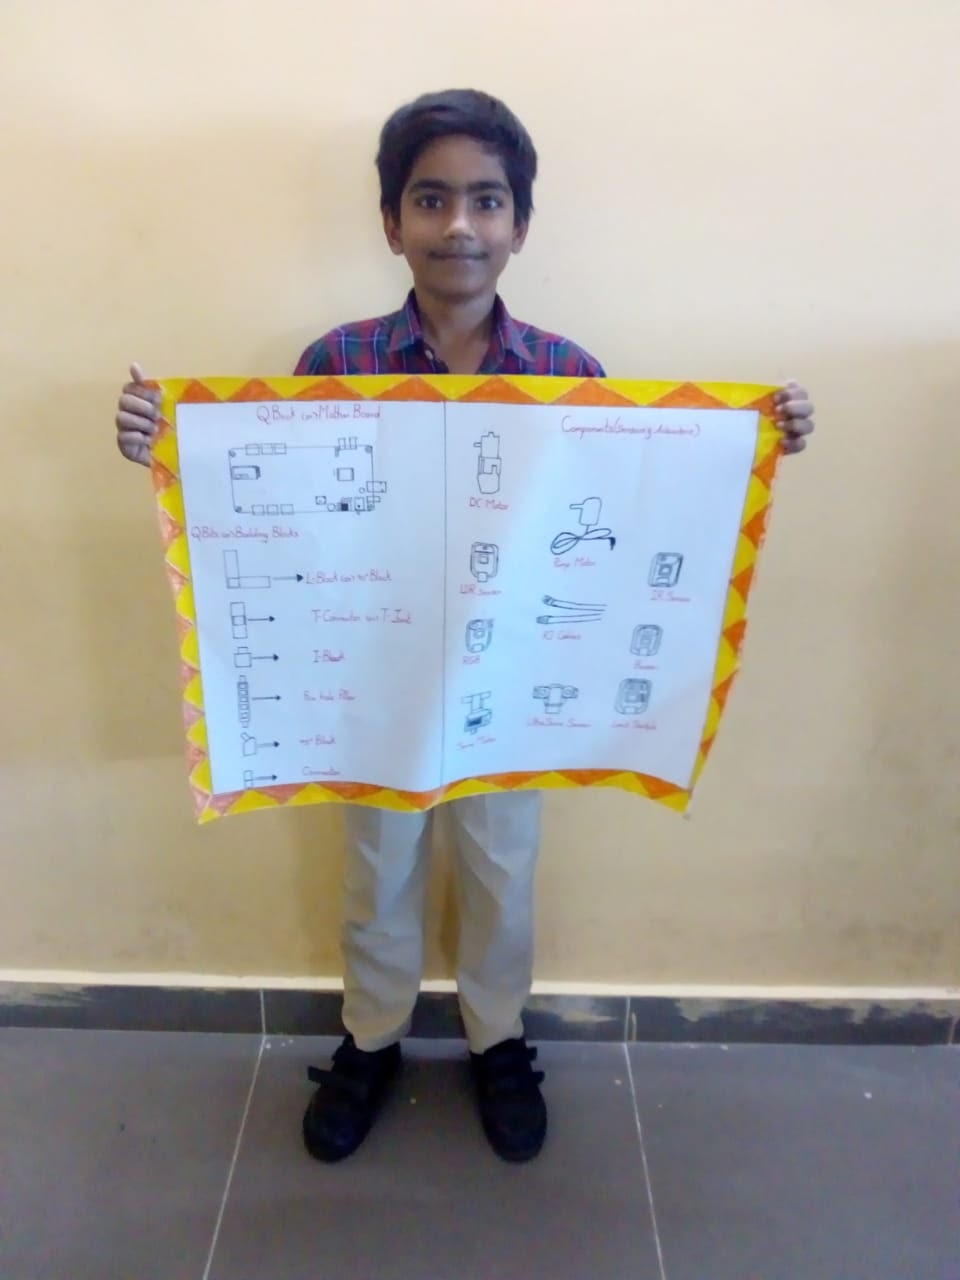 Q Brick (or) Mother Board
QBits (or) Building Blocks
L-Block (or) 90° Block
T-Connector (or) T-Joint
I-Block
Five hole Pillar
Block
Connector
Components (Sensors &
DC Motor
Pump Motor
LDR Sensor
IR Sensor
RJ Cables
RGB
Buzzer
Servo Motor
UltraSonic Sensor
Limit Switch